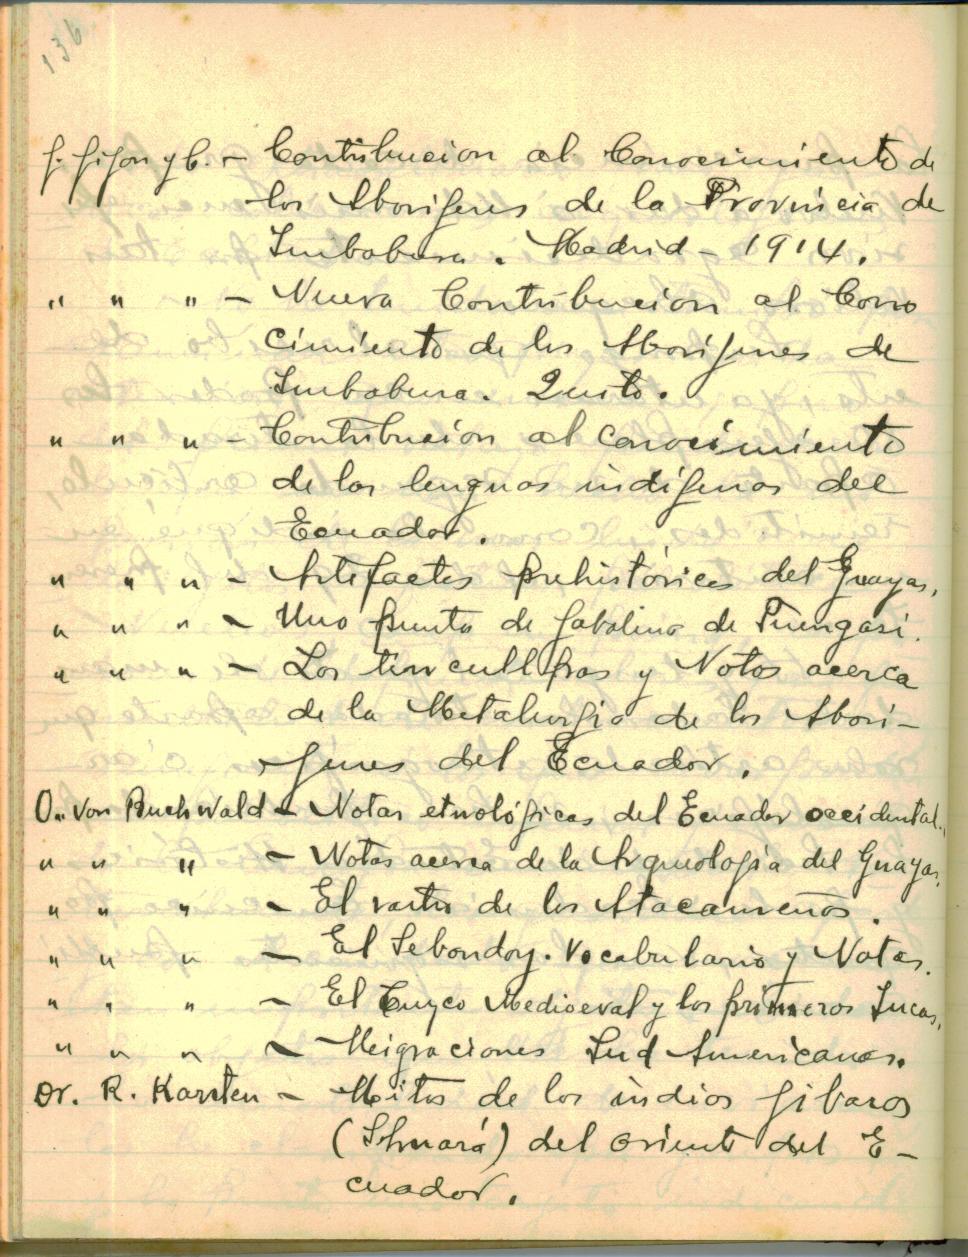 136
J. Jijon y C. - Contribucion al Conocimiento de
los Aborigenes de la Provincia de
Imbabura. Madrid - 1914.
" " " - Nueva Contribucion al Cono
cimiento de los Aborigenes de
Imbabura. Quito.
" " " - Contribucion al conocimiento
de las lenguas indígenas del
Ecuador.
" " " - Artefactos prehistóricos del Guayas.
" " " - Una punta de jabalina de Puengasí.
" " " - Los tincullpas y Notas acerca
de la Metalurgia de los Abori-
genes del Ecuador.
O. von Buchwald - Notas etnológicas del Ecuador occidental.
" " " - Notas acerca de la Arqueología del Guayas.
" " " - El rastro de los Atacameños.
" " " - El Sebondoy. Vocabulario y Notas.
" " " - El Cuyco Medioeval y los primeros Incas.
" " " - Meigraciones Sud Americanas.
Dr. R. Karsten - Mitos de los indios Jibaros
(Shuará) del oriente del E-
cuador.